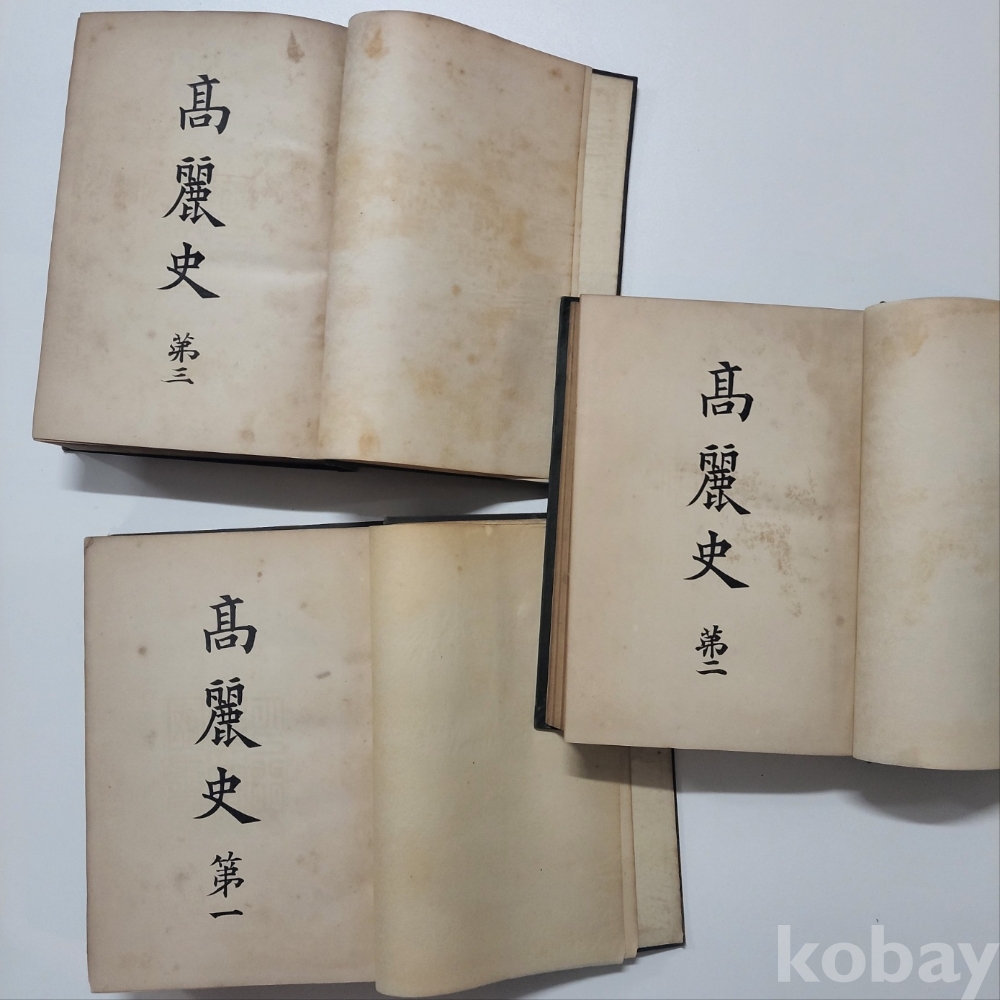 髙麗史
第三
髙麗史
第二
髙麗史
第一
kobay